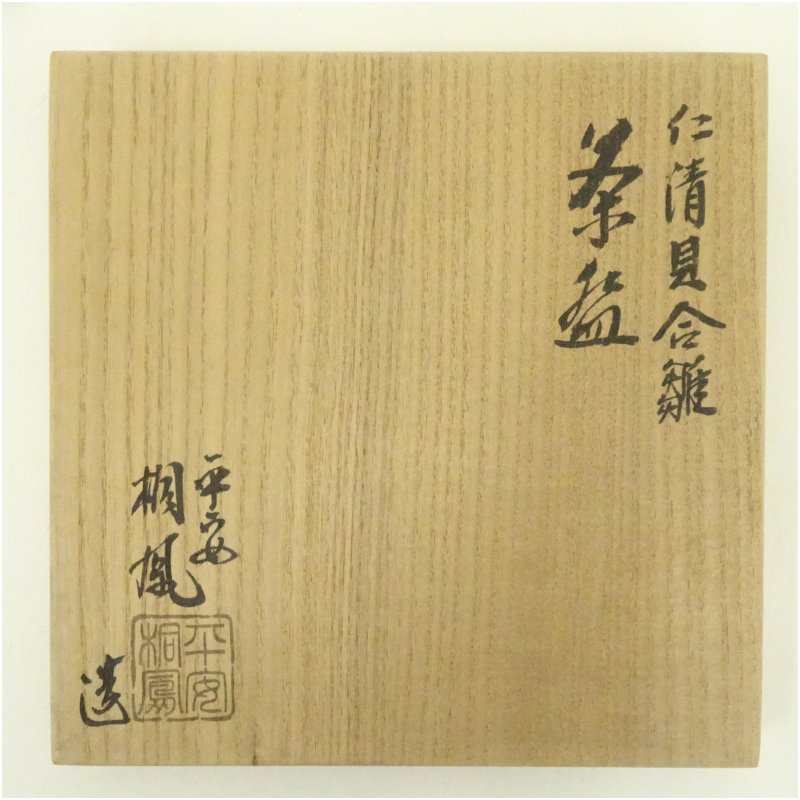 仁清見合雛
茶盌
平安
桐鳳
造
平安
桐鳳